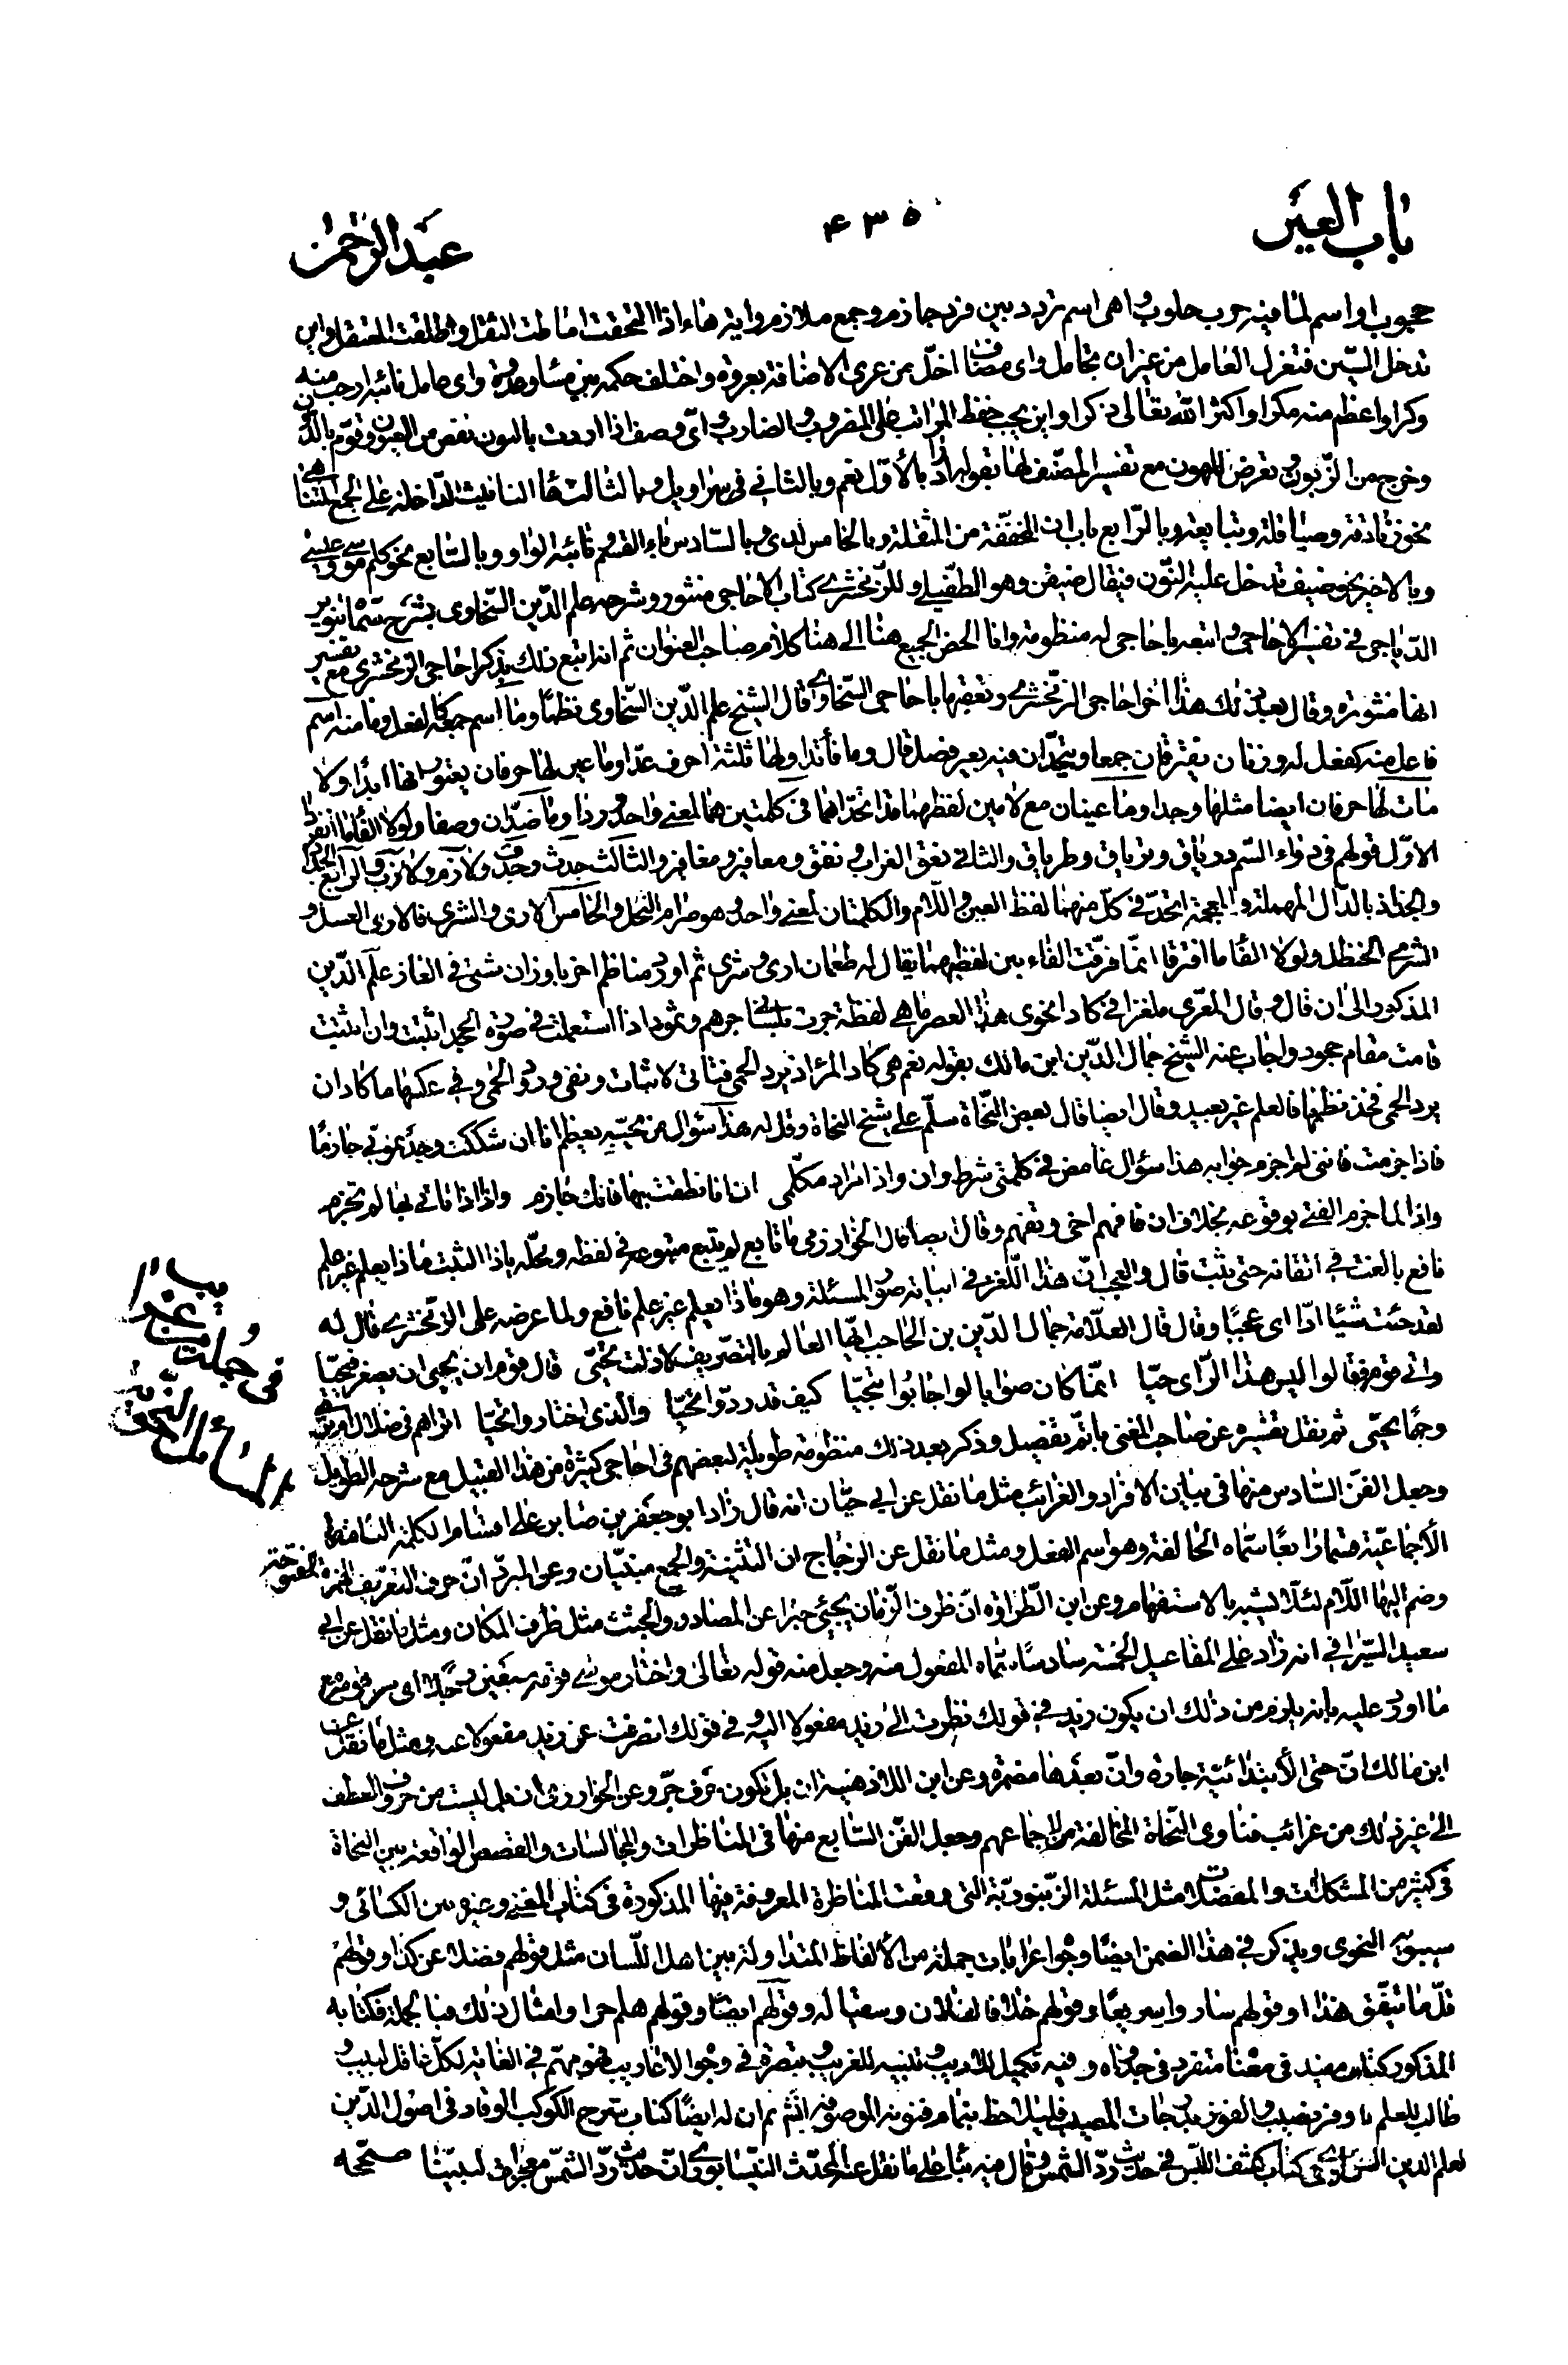 باب العين
٤٣٥
عبد الرحمن
محبوب او اسم لما فيه حرف حلوب واى اسم تردد بين فرد حازم وجمع ملازم واية هاء اذا التحقت اماطت الثقل واطلقت المعتقل واين
تدخل السّين فتعزل العامل من غير ان تجامل واى مضاف اخلّ من عرى الاضافة بعروة واختلف حكمه بين مساء وغدوة واى عامل نائبه ارحب منه
وكرا واعظم منه مكرا واكثر الله تعالى ذكرا واين يجب حفظ المراتب على المضروب والضارب واىّ وصف اذا اردف بالنون نقص من العيون وقوّم بالدون
وخرج من الزّبون وتعرض للهون مع تفسير المصنّف لها بقوله اراد بالأوّل نعم وبالثانى فى سراويل وبالثالث هاء التانيث الدّاخلة على الجمع المتناهى
نحو زنادقة وصياقلة وتبابعة وبالرّابع باب ان المخفّفة من المثقلة وبالخامس لدى وبالسّادس باء القسم نائبة الواو وبالسّابع نحو كلم موسى عيسى
وبالاخير نحو ضيف تدخل عليه النّون فيقال ضيفن وهو الطفيلى وللزّمخشرى كتاب الاحاجى منثور وشرحه علم الدّين السّخاوى بشرح سمّاه تنوير
الدّياجى فى تفسير الاحاجى واتبعه باحاجى له منظومة وانا الخص الجميع هنا الى هنا كلام صاحب العنوان ثم انه اتبع ذلك بذكر احاجى الزمخشرى مع تفسير
انها منثورة وقال بعد ذلك هذا اخر احاجى الزمخشرى وتعقبها باحاجى السّخاوى قال الشيخ علم الدّين السّخاوى نظما وما اسم جمعه كالفعل وما منه اسم
فاعل منه كفعل له وزنان يفترقان جمعا ويتّحدان فيه بغير فصل قال وما فاء تداولها ثلثة احرف عدّا وما عين لها حرفان يعتورانها ابدا ولا
مات لها حرفان ايضا مثلها وجدا وما عينان مع لامين لفظهما قد اتحدا هما فى كلمتين هما لمعنى واحد وردا وما ضدّان وصفا ولولا الفاء ما انفردا
الاوّل قولهم فى دواء السّم درياق وترياق وطرياق والثانى نعق الغراب ونغق ومعافير ومغافير والثالث جدث وجدف ولازم ولازب والرابع الجداد
والجذاذ بالدّال المهملة والمعجمة اتحد فى كلّ منهما لفظ العين واللام والكلمتان لمعنى واحد وهو صرام النخل والخامس الارى والشرى فالارى العسل و
الشرى الحنظل ولولا الفاء ما افترقا انّما فرّقت الفاء بين لفظيهما يقال له طعمان ارى وشرى ثم اورد مناظم اخر باوزان شتى فى الغاز علم الدّين
المذكور الى ان قال وقال المعّرى ملغزا فى كاد انحوى هذا العصر ما هى لفظة جرت بلسانى جرهم وثمود اذا استعملت فى صورة الجحد اثبتت وان اثبتت
قامت مقام جحود واجاب عنه الشيخ جمال الدّين ابن مالك بقوله نعم هى كاد المرء ان يرد الحمى فتاتى لاثبات ونفى ورود الحمى وفى عكسها ما كاد ان
يرد الحمى فخذ نظمها فالعلم غير بعيد وقال ايضا قال بعض النّحاة سلّم على شيخ النحاة وقل له هذا سؤال من يجبه يعظم انا ان شككت وجدتمونى جازما
فاذا جزمت فاننى لم اجزم جوابه هذا سؤال غامض فى كلمتى شرط وان واذا مراد مكلّمى ان ان نطقت بها فانك جازم واذا اذا تاتى بها لم تجزم
واذا لما جزم الفتى بوقوعه بخلاف ان فافهم اخى وتفهم وقال ايضا قال الخوارزمى ما تابع لم يتبع متبوعه فى لفظه ومحلّه ياذا الثبت ماذا يعلم غير علم
نافع بالغت فى اتقانه حتى يثبت قال والعجب انّ هذا اللّغز فى ابياته صور المسئلة وهو ماذا يعلم غير علم نافع ولما عرضه على الزّمخشرى قال له
لقد جئت شيئا ادّا اى عجبا وقال قال العلّامة جمال الدّين بن الحاجب ايّها العالم بالتصريف لا زلت تحيّى قال قوم ان يحيى ان يصغر فيحيّا
وابى قوم فقالوا ليس هذا الرّاى حيّا انّما كان صوابا لو اجابوا بتحيّيا كيف قد ردّوا تحيّيا والّذى اختاروا يحيّا اتراهم فى ضلال ام ترى
وجها يحيّى ثم نقل تفسيره عن صاحب المغنى باتمّ تفصيل وذكر بعد ذلك منظومة طويلة لبعضهم فى احاجى كثيرة من هذا القبيل مع شرحه الطويل
وجعل الفنّ السّادس منها فى بيان الافراد والغرائب مثل ما نقل عن ابى حيّان انه قال زاد ابو جعفر بن صابر على اقسام الكلمة الثلاثة
الأجماعيّة قسما رابعا سمّاه الخالفة وهو اسم الفعل ومثل ما نقل عن الزجاج ان التثنية والجمع مبنيّان وعن المبرد انّ حرف التعريف الهمزة المفتوحة
وضم اليها اللام لئلّا يشتبه بالاستفهام وعن ابن الطّراوة انّ ظرف الزّمان يجئ خبرا عن المصادر والجثث مثل ظرف المكان ومثل ما نقل عن ابى
سعيد السيّرافى انه زاد على المفاعيل الخمسة سادسا سمّاه المفعول منه وجعل منه قوله تعالى واختار موسى قومه سبعين رجلا اى من قومه مع
ما اورد عليه بانه يلزم من ذلك ان يكون زيد فى قولك نظرت الى زيد مفعولا اليه وفى قولك انصرفت عن زيد مفعولا عنه ومثل ما نقل عن
ابن مالك انّ حتى الأبتدائيّة جارة وانّ بعدها مضمرة وعن ابن اللاذهنية ان بل تكون حرف جرّ وعن الخوارزمى ان بل ليست من حروف العطف
الى غير ذلك من غرائب فتاوى النّحاة المخالفة لاجماعهم وجعل الفنّ السّابع منها فى المناظرات والمجالسات والقصص الواقعة بين النحاة
فى كثير من المشكلات والمعضلات مثل المسئلة الزّنبوريّة التى وقعت المناظرة المعروفة فيها المذكورة فى كتاب المغنى وغيره بين الكسائى و
سيبويه النحوى ويذكر فى هذا الضمن ايضا وجوه اعرابات جملة من الألفاظ المتداولة بين اهل اللّسان مثل قولهم فضلا عن كذا وقولهم
قلّ ما يتّفق هذا وقولهم سار واسريعا وقولهم خلافا لفلان وسقيا له وقولهم ايضا وقولهم هلم جرا وامثال ذلك فبالجملة فكتابه
المذكور كتاب مفيد فى معناه متفرد فى جدواه وفيه تكميل للاديب وتنبيه للغريب وتبصرة فى وجوه الاعاريب فهو مهمّ فى الغاية لكلّ عاقل لبيب و
طالب للعلم باوفر نصيب والفوز بدرجات المصيب فليلاحظ بتمام فنونه الموصوفة انتهى ثم ان له ايضا كتاب شرح الكوكب الوقاد فى اصول الدّين
لعلم الدين السخاوى وكتاب كشف اللّبس فى حديث ردّ الشمس وقال فيه بناء على ما نقل عنه المحدّث النّيسابورى وانّ حديث ردّ الشّمس معجزات لنبيّنا صحّحه
فى جملة من
المسائل النّحوية